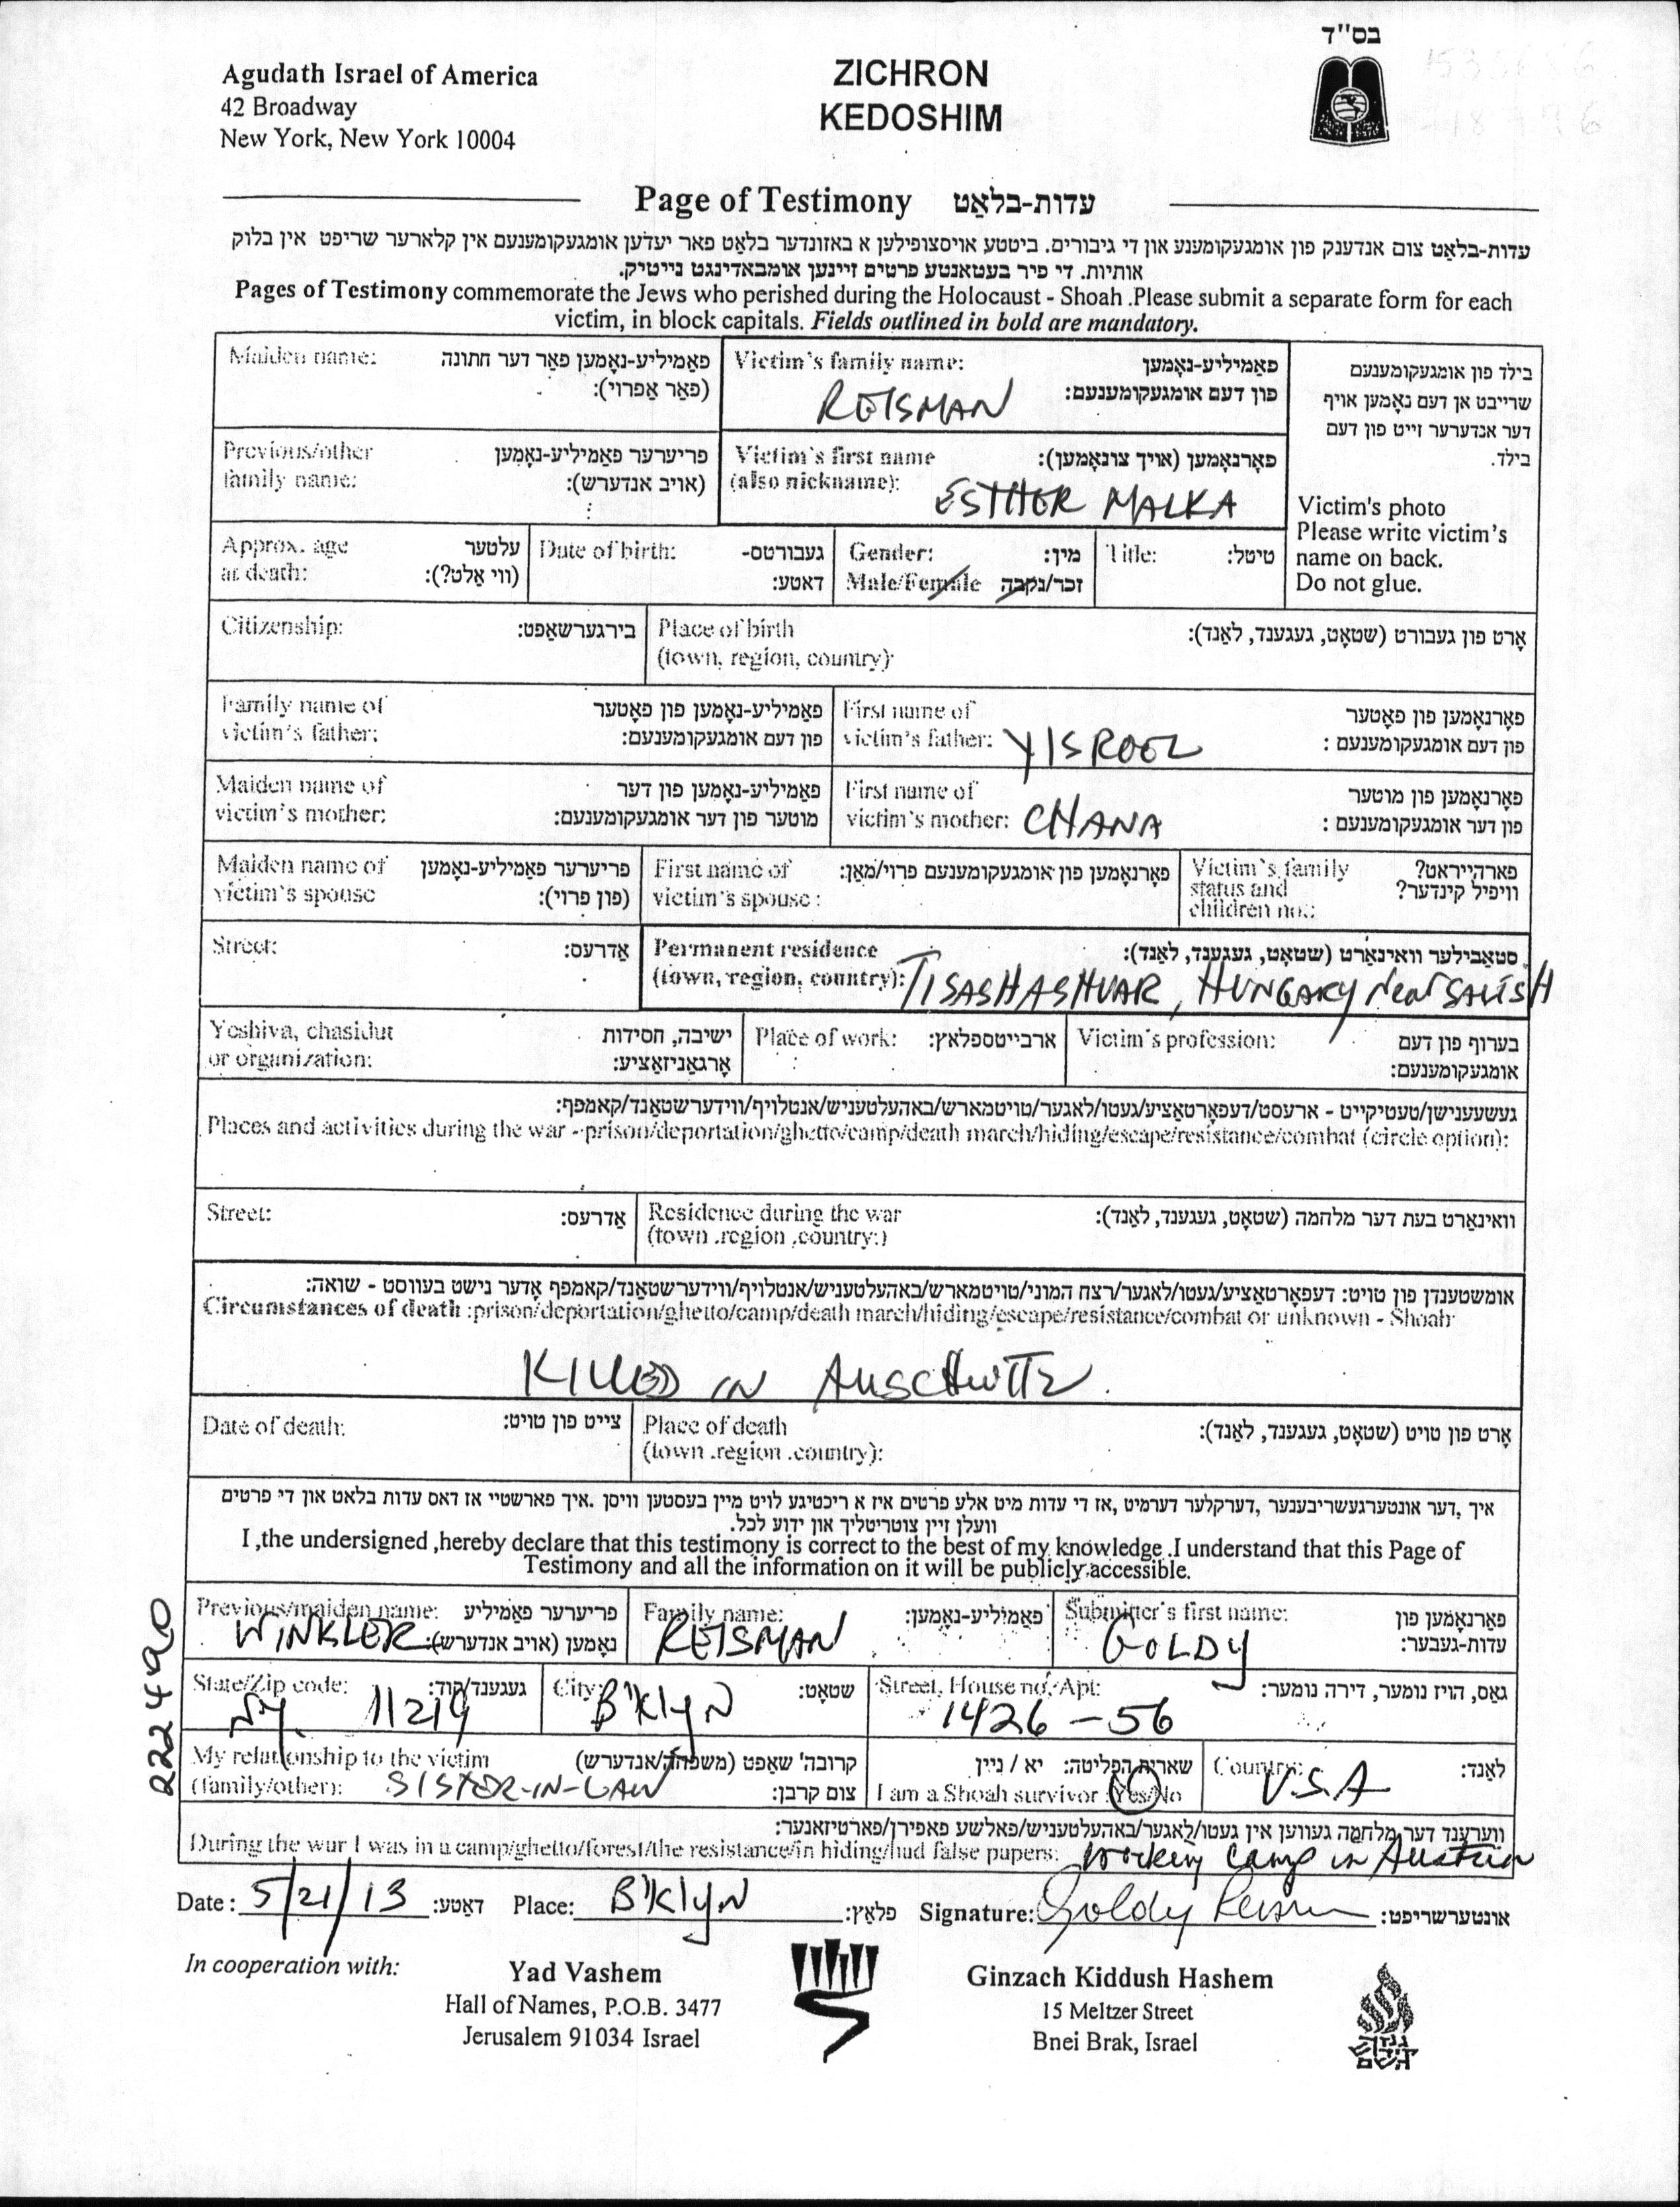 בס"ד
Agudath Israel of America
42 Broadway
New York, New York 10004
ZICHRON
KEDOSHIM
Page of Testimony עדות-בלאַט
עדות-בלאַט צום אנדענק פון אומגעקומענע און די גיבורים. ביטטע אויסצופילען א באזונדער בלאַט פאר יעדען אומגעקומענעם אין קלארער שריפט אין בלוק
אותיות. די פיר בעטאנטע פרטים זיינען אומבאדינגט נייטיק.
Pages of Testimony commemorate the Jews who perished during the Holocaust - Shoah .Please submit a separate form for each
victim, in block capitals. Fields outlined in bold are mandatory.
Maiden name: פאַמיליע-נאָמען פאַר דער חתונה
(פאַר אַפרוי):
Victim's family name: פאַמיליע-נאָמען
פון דעם אומגעקומענעם:
REISMAN
בילד פון אומגעקומענעם
שרייבט אן דעם נאָמען אויף
דער אנדערער זייט פון דעם
בילד.
Victim's photo
Please write victim's
name on back.
Do not glue.
Previous/other פריערער פאַמיליע-נאָמען
family name: (אויב אנדערש):
Victim's first name פאָרנאָמען (אויך צונאָמען):
(also nickname):
ESTHER MALKA
Approx. age עלטער
at death: (ווי אַלט?):
Date of birth: געבורטס-
דאטע:
Gender: מין:
Male/Female זכר/נקבה
Title: טיטל:
Citizenship: בירגערשאַפט:
Place of birth אָרט פון געבורט (שטאָט, געגענד, לאַנד):
(town, region, country):
Family name of פאַמיליע-נאָמען פון פאָטער
victim's father: פון דעם אומגעקומענעם:
First name of פאָרנאָמען פון פאָטער
victim's father: YISROEL פון דעם אומגעקומענעם :
Maiden name of פאַמיליע-נאָמען פון דער
victim's mother: מוטער פון דער אומגעקומענעם:
First name of פאָרנאָמען פון מוטער
victim's mother: CHANA פון דער אומגעקומענעם :
Maiden name of פריערער פאַמיליע-נאָמען
victim's spouse (פון פרוי):
First name of פאָרנאָמען פון אומגעקומענעם פרוי/מאַן:
victim's spouse :
Victim's family פארהייראט?
status and וויפיל קינדער?
children no.:
Street: אַדרעס:
Permanent residence סטאַבילער וואינאָרט (שטאָט, געגענד, לאַנד):
(town, region, country): TISASHASHVAR, HUNGARY near SALISH
Yeshiva, chasidut ישיבה, חסידות
or organization: אָרגאַניזאַציע:
Place of work: ארבייטספלאץ:
Victim's profession: בערוף פון דעם
אומגעקומענעם:
געשעענישן/טעטיקייט - ארעסט/דעפאָרטאַציע/געטו/לאגער/טויטמארש/באהעלטעניש/אנטלויף/ווידערשטאַנד/קאמפף:
Places and activities during the war - prison/deportation/ghetto/camp/death march/hiding/escape/resistance/combat (circle option):
Street: אַדרעס:
Residence during the war וואינאָרט בעת דער מלחמה (שטאָט, געגענד, לאַנד):
(town .region .country:)
אומשטענדן פון טויט: דעפאָרטאַציע/געטו/לאגער/רצח המוני/טויטמארש/באהעלטעניש/אנטלויף/ווידערשטאַנד/קאמפף אָדער נישט בעוווסט - שואה:
Circumstances of death :prison/deportation/ghetto/camp/death march/hiding/escape/resistance/combat or unknown - Shoah
KILLED IN AUSCHWITZ
Date of death: צייט פון טויט:
Place of death אָרט פון טויט (שטאָט, געגענד, לאַנד):
(town .region .country):
איך ,דער אונטערגעשריבענער ,דערקלער דערמיט ,אז די עדות מיט אלע פרטים איז א ריכטיגע לויט מיין בעסטען וויסן .איך פארשטיי אז דאס עדות בלאט און די פרטים
וועלן זיין צוטריטליך און ידוע לכל.
I ,the undersigned ,hereby declare that this testimony is correct to the best of my knowledge .I understand that this Page of
Testimony and all the information on it will be publicly accessible.
Previous/maiden name: פריערער פאַמיליע
WINKLER נאָמען (אויב אנדערש):
Family name: פאַמיליע-נאָמען:
REISMAN
Submitter's first name: פאָרנאָמען פון
GOLDY עדות-געבער:
State/Zip code: געגענד/קוד:
NY. 11219
City: שטאָט:
B'klyn
Street, House no, Apt: גאַס, הויז נומער, דירה נומער:
1426 - 56
My relationship to the victim קרובה' שאַפט (משפחה/אנדערש)
(family/other): SISTER-IN-LAW צום קרבן:
שארית הפליטה: יא / ניין
I am a Shoah survivor :Yes/No
Country: לאַנד:
U.S.A
ווערענד דער מלחמה געווען אין געטו/לאגער/באהעלטעניש/פאלשע פאפירן/פארטיזאנער:
During the war I was in a camp/ghetto/forest/the resistance/in hiding/had false papers: Working Camp in Austria
Date : 5/21/13 דאטע: Place: B'klyn פלאץ: Signature: Goldy Reisman אונטערשריפט:
222490
In cooperation with:
Yad Vashem
Hall of Names, P.O.B. 3477
Jerusalem 91034 Israel
Ginzach Kiddush Hashem
15 Meltzer Street
Bnei Brak, Israel
גנזך
קידוש
השם